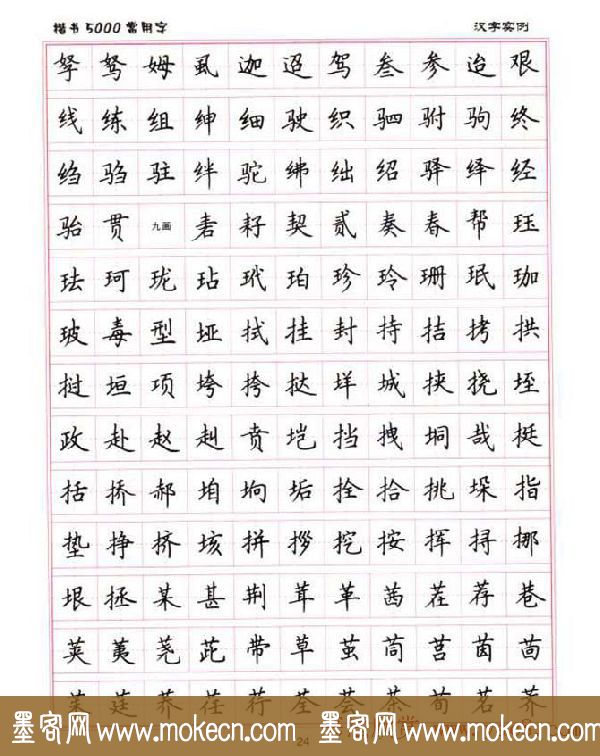 楷书5000常用字 汉字实例
孥 驽 姆 虱 迦 迢 驾 叁 参 迨 艰
线 练 组 绅 细 驶 织 驷 驸 驹 终
绉 驺 驻 绊 驼 绋 绌 绍 驿 绎 经
骀 贯 九画 砉 耔 契 贰 奏 春 帮 珏
珐 珂 珑 玷 玳 珀 珍 玲 珊 珉 珈
玻 毒 型 垭 拭 挂 封 持 拮 拷 拱
挝 垣 项 垮 挎 挞 垟 城 挟 挠 垤
政 赴 赵 赳 贲 垲 挡 拽 垌 哉 挺
括 挢 郝 垍 垧 垢 拴 拾 挑 垛 指
垫 挣 挤 垓 拼 拶 挖 按 挥 挦 挪
垠 拯 某 甚 荆 茸 革 茜 茬 荐 巷
荚 荑 荛 茈 带 草 茧 茼 莒 茵 茴
茱 莛 荞 茯 荇 荃 荟 茶 荀 茗 荠
墨客网 www.mokecn.com 墨客网 www.mokecn.com
24